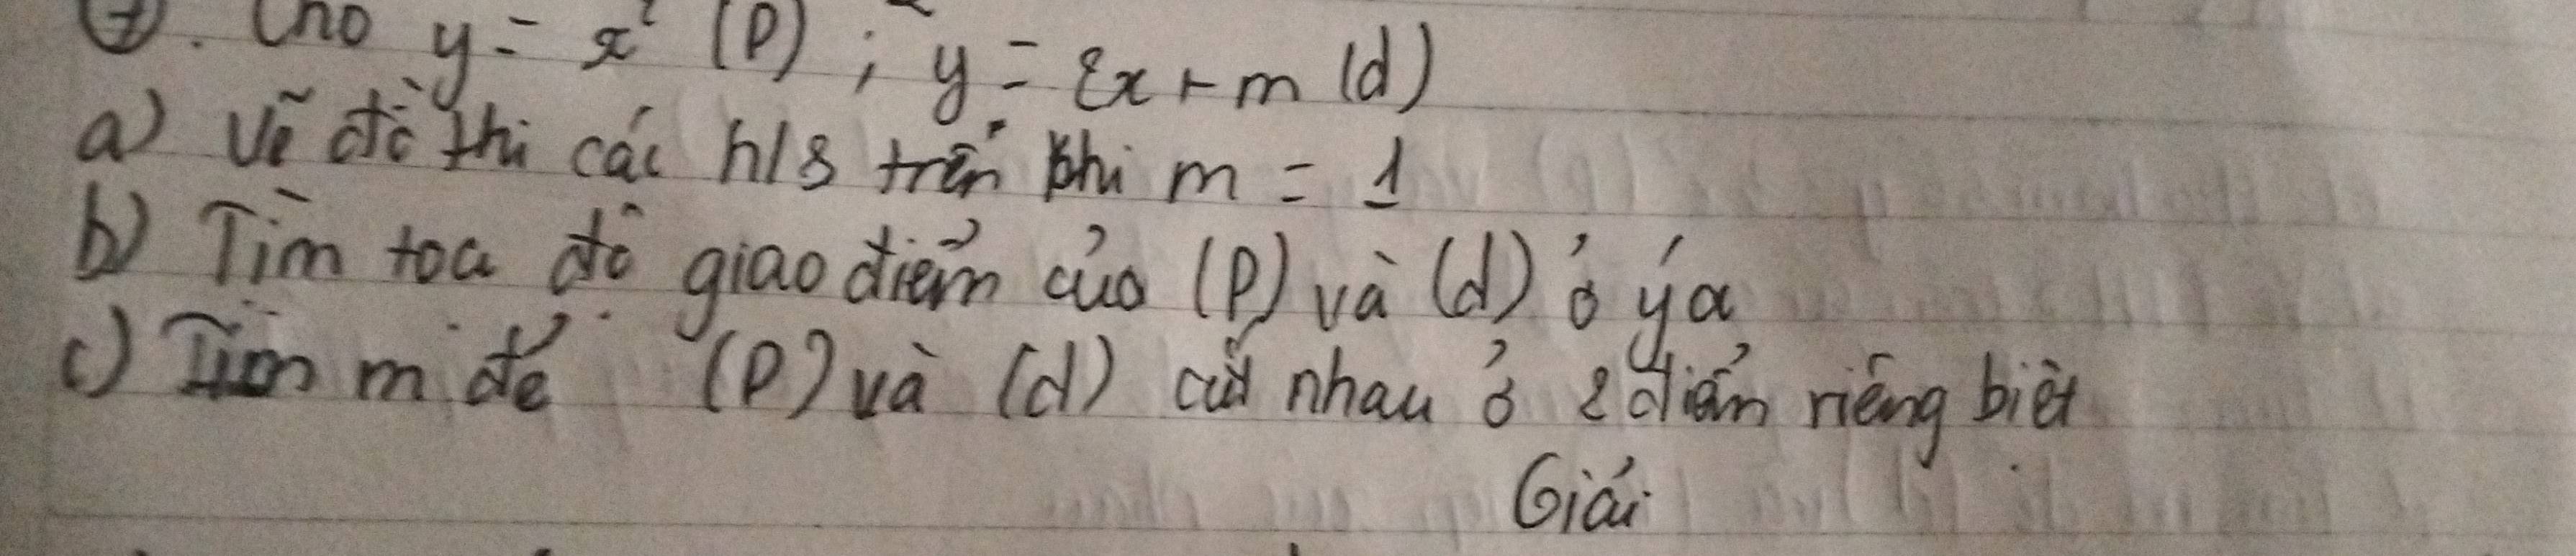 7. Cho y = x² (P) ; y = 2x + m (d)
a) Vẽ đồ thị các h/s trên khi m = 1
b) Tìm toạ độ giao điểm của (P) và (d) ở ý a
c) Tìm m để (P) và (d) cắt nhau ở 2 điểm riêng biệt
Giải